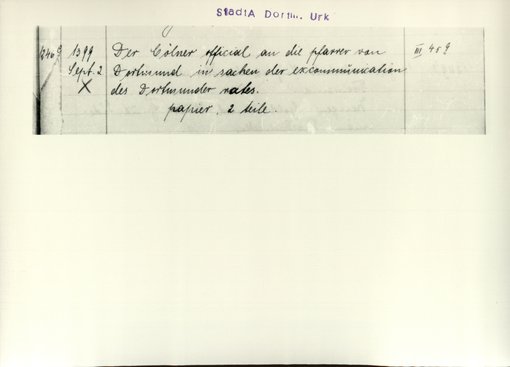 StadtA Dortm. Urk
2409 1399 Der Cölner official an die pfarrer von III 459
Sept. 2 Dortmund in sachen der excommunication
X des Dortmunder rates.
papier, 2 teile.